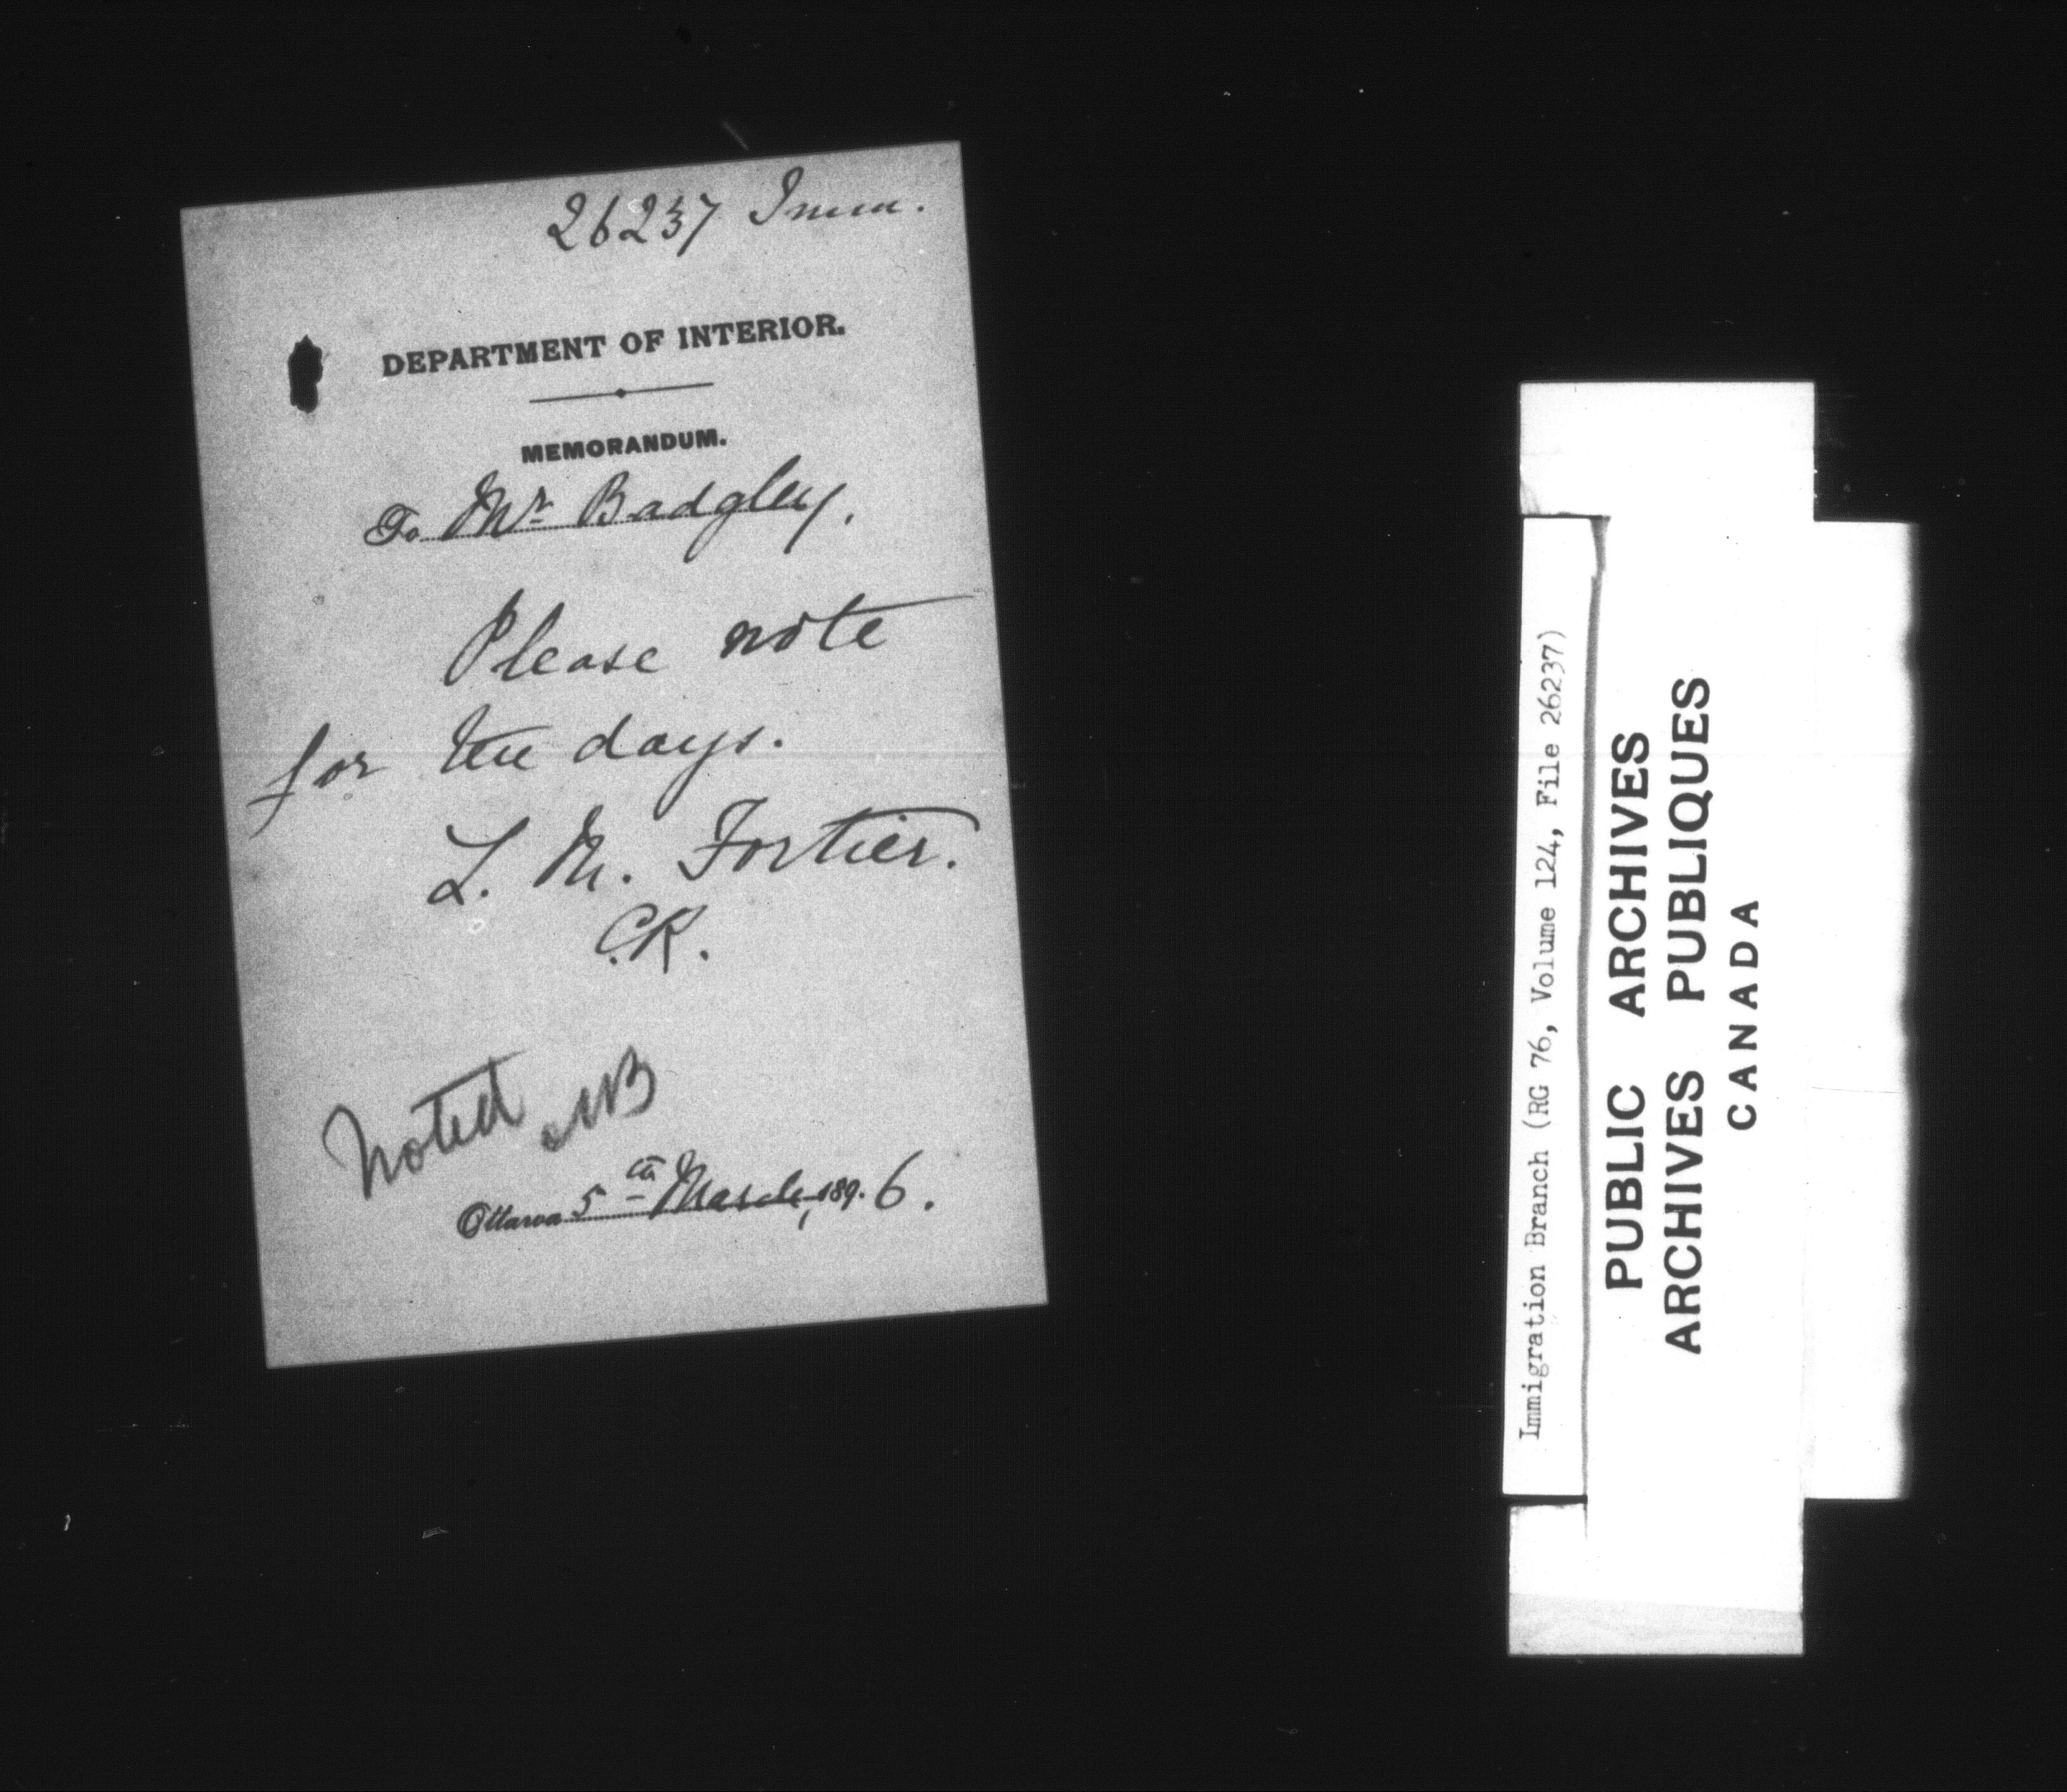 26237 Imm.
DEPARTMENT OF INTERIOR.
MEMORANDUM.
To Mr Badgley.
Please note
for ten days.
L. M. Fortier.
C.K.
Noted
Ottawa 5th March, 189.6.
Immigration Branch (RG 76, Volume 124, File 26237)
PUBLIC ARCHIVES
ARCHIVES PUBLIQUES
CANADA